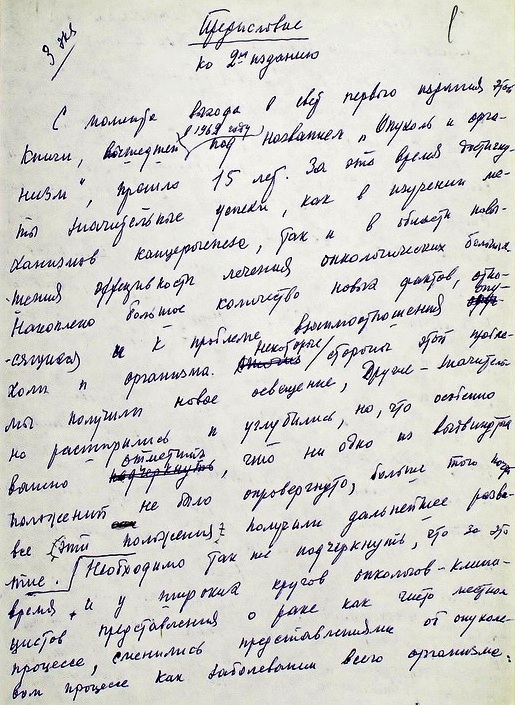 3 экз
Предисловие
ко 2му изданию
С момента выхода в свет первого издания этой
книги, вышедшей в 1962 году под названием „Опухоль и орга-
низм", прошло 15 лет. За это время достигну-
ты значительные успехи, как в изучении ме-
ханизмов канцерогенеза, так и в области повы-
шения эффективности лечения онкологических больных.
Накоплено большое количество новых фактов, отно-
сящихся к проблеме взаимоотношения опу-
холи и организма. Некоторые стороны этой пробле-
мы получили новое освещение, другие - значитель-
но расширились и углубились, но, что особенно
важно отметить, что ни одно из выдвинутых
положений не было опровергнуто, больше того
все эти положения получили дальнейшее разви-
тие. Необходимо так же подчеркнуть, что за это
время и у широких кругов онкологов-клини-
цистов представления о раке как чисто местном
процессе, сменились представлениями об опухоле-
вом процессе как заболевании всего организма.